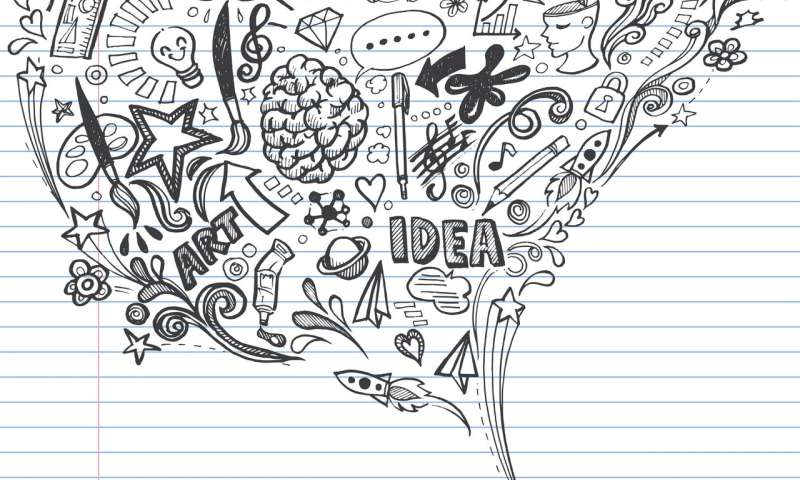 ART
IDEA